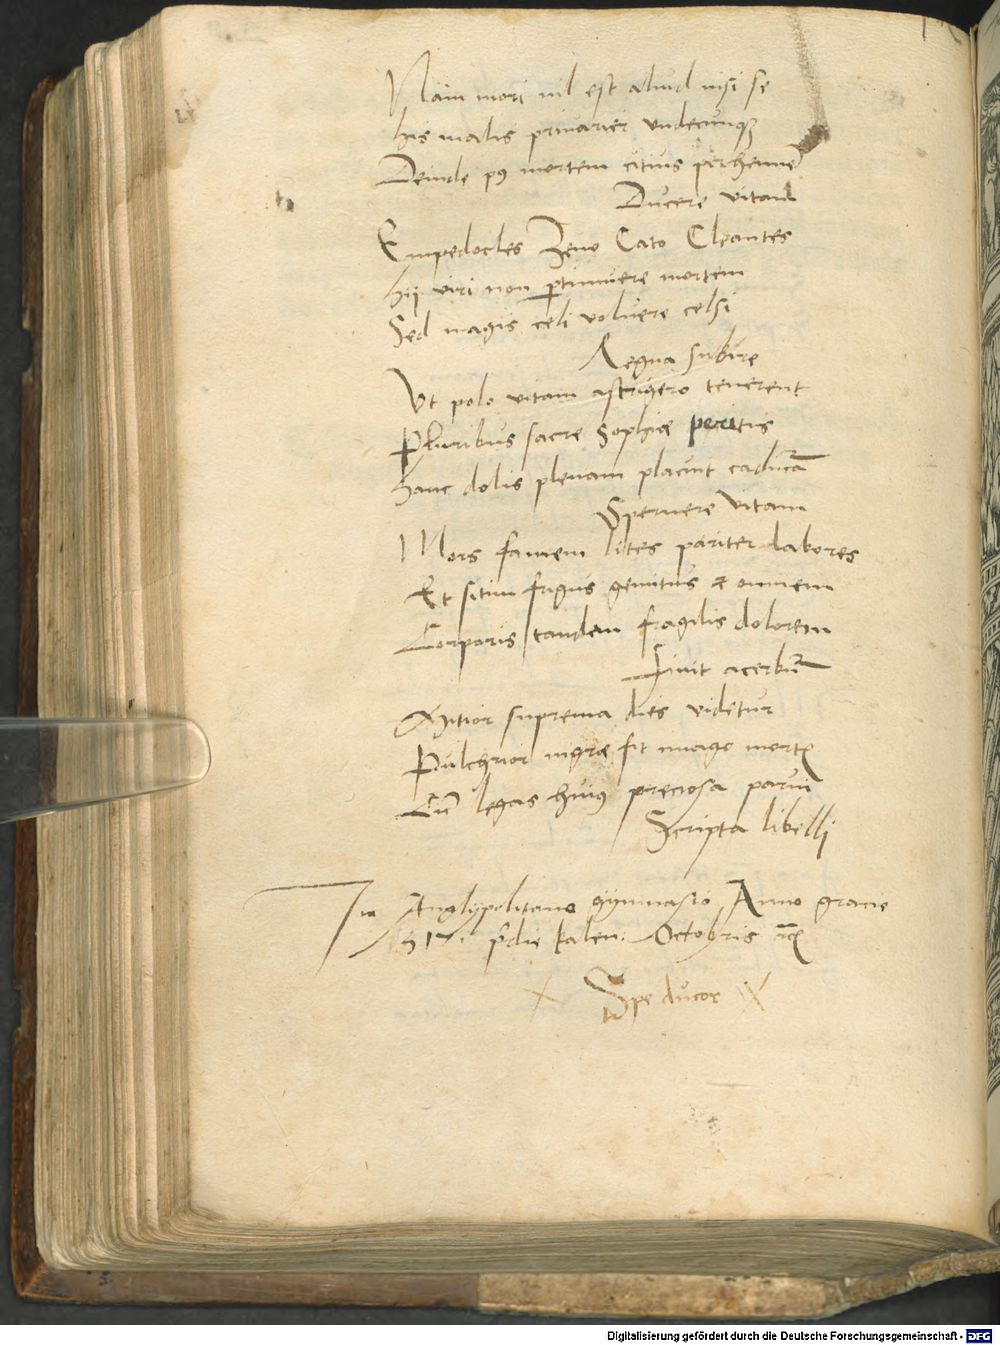 Nam mori nil est aliud nisi se
his malis privarier undecunqꝫ
Deinde pꝰ mortem citius perhennē
Ducere vitam
Empedocles Zeno Cato Cleantes
hij viri non ꝑtimuere mortem
Sed magis celi voluere celsi
Regna subire
Ut polo vitam astrigero tenerent
Pluribus sacre Sophiæ peritis
hanc dolis plenam placuit caducā
Spernere vitam
Mors famem lites pariter labores
Et sitim frigus gemitus et omnem
Corporis tandem fragilis dolorem
Finit acerbū
Mitior suprema dies videtur
Pulchrior nigræ fit imago mortꝭ
Cū legas huiꝰ preciosa parvi
Scripta libelli
In Anglypolitano gymnasio Anno gracie
517. pͥdie kalen: Octobris
Spe ducor
Digitalisierung gefördert durch die Deutsche Forschungsgemeinschaft - DFG